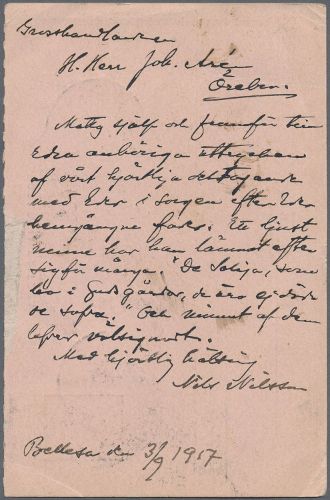 Grosshandlanden
H. Herr Joh. Aré
Örebro.
Mottag själf och framför till
Edra anhöriga uttrycken
af vårt hjärtliga deltagande
med Eder i sorgen efter Eder
hemgångne fader. Ett ljust
minne har han lämnat efter
sig för många. "De heliga, som
bo i Guds gårdar, de äro ej döda
de sofva." Och minnet af dem
lefver välsignadt.
Med hjärtlig hälsning
Nils Nilsson
den 3/9 1917